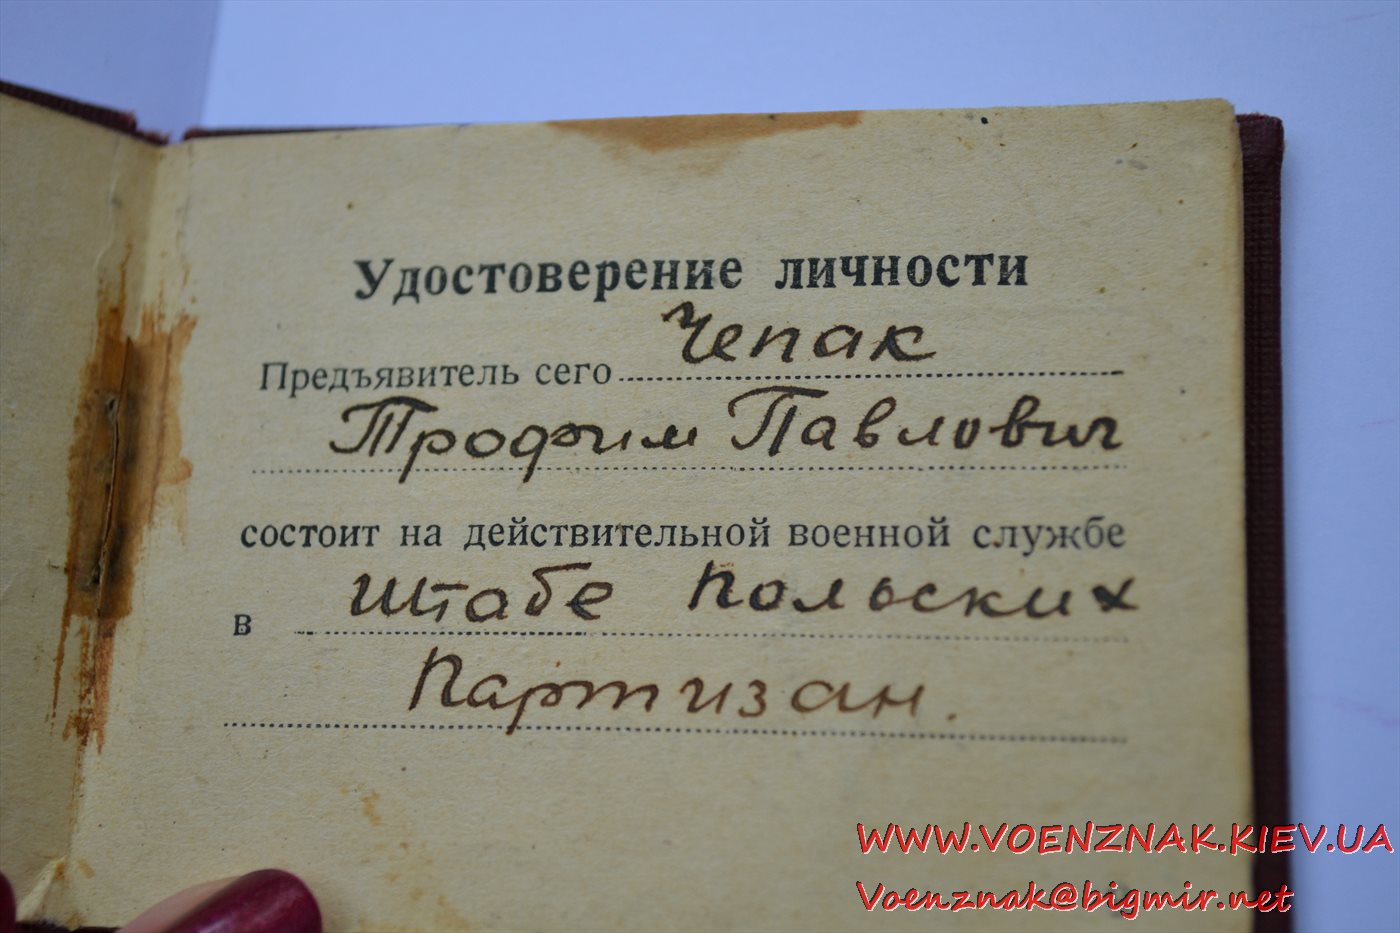 Удостоверение личности
Предъявитель сего Чепак
Трофим Павлович
состоит на действительной военной службе
в штабе Польских
Партизан.
WWW.VOENZNAK.KIEV.UA
Voenznak@bigmir.net